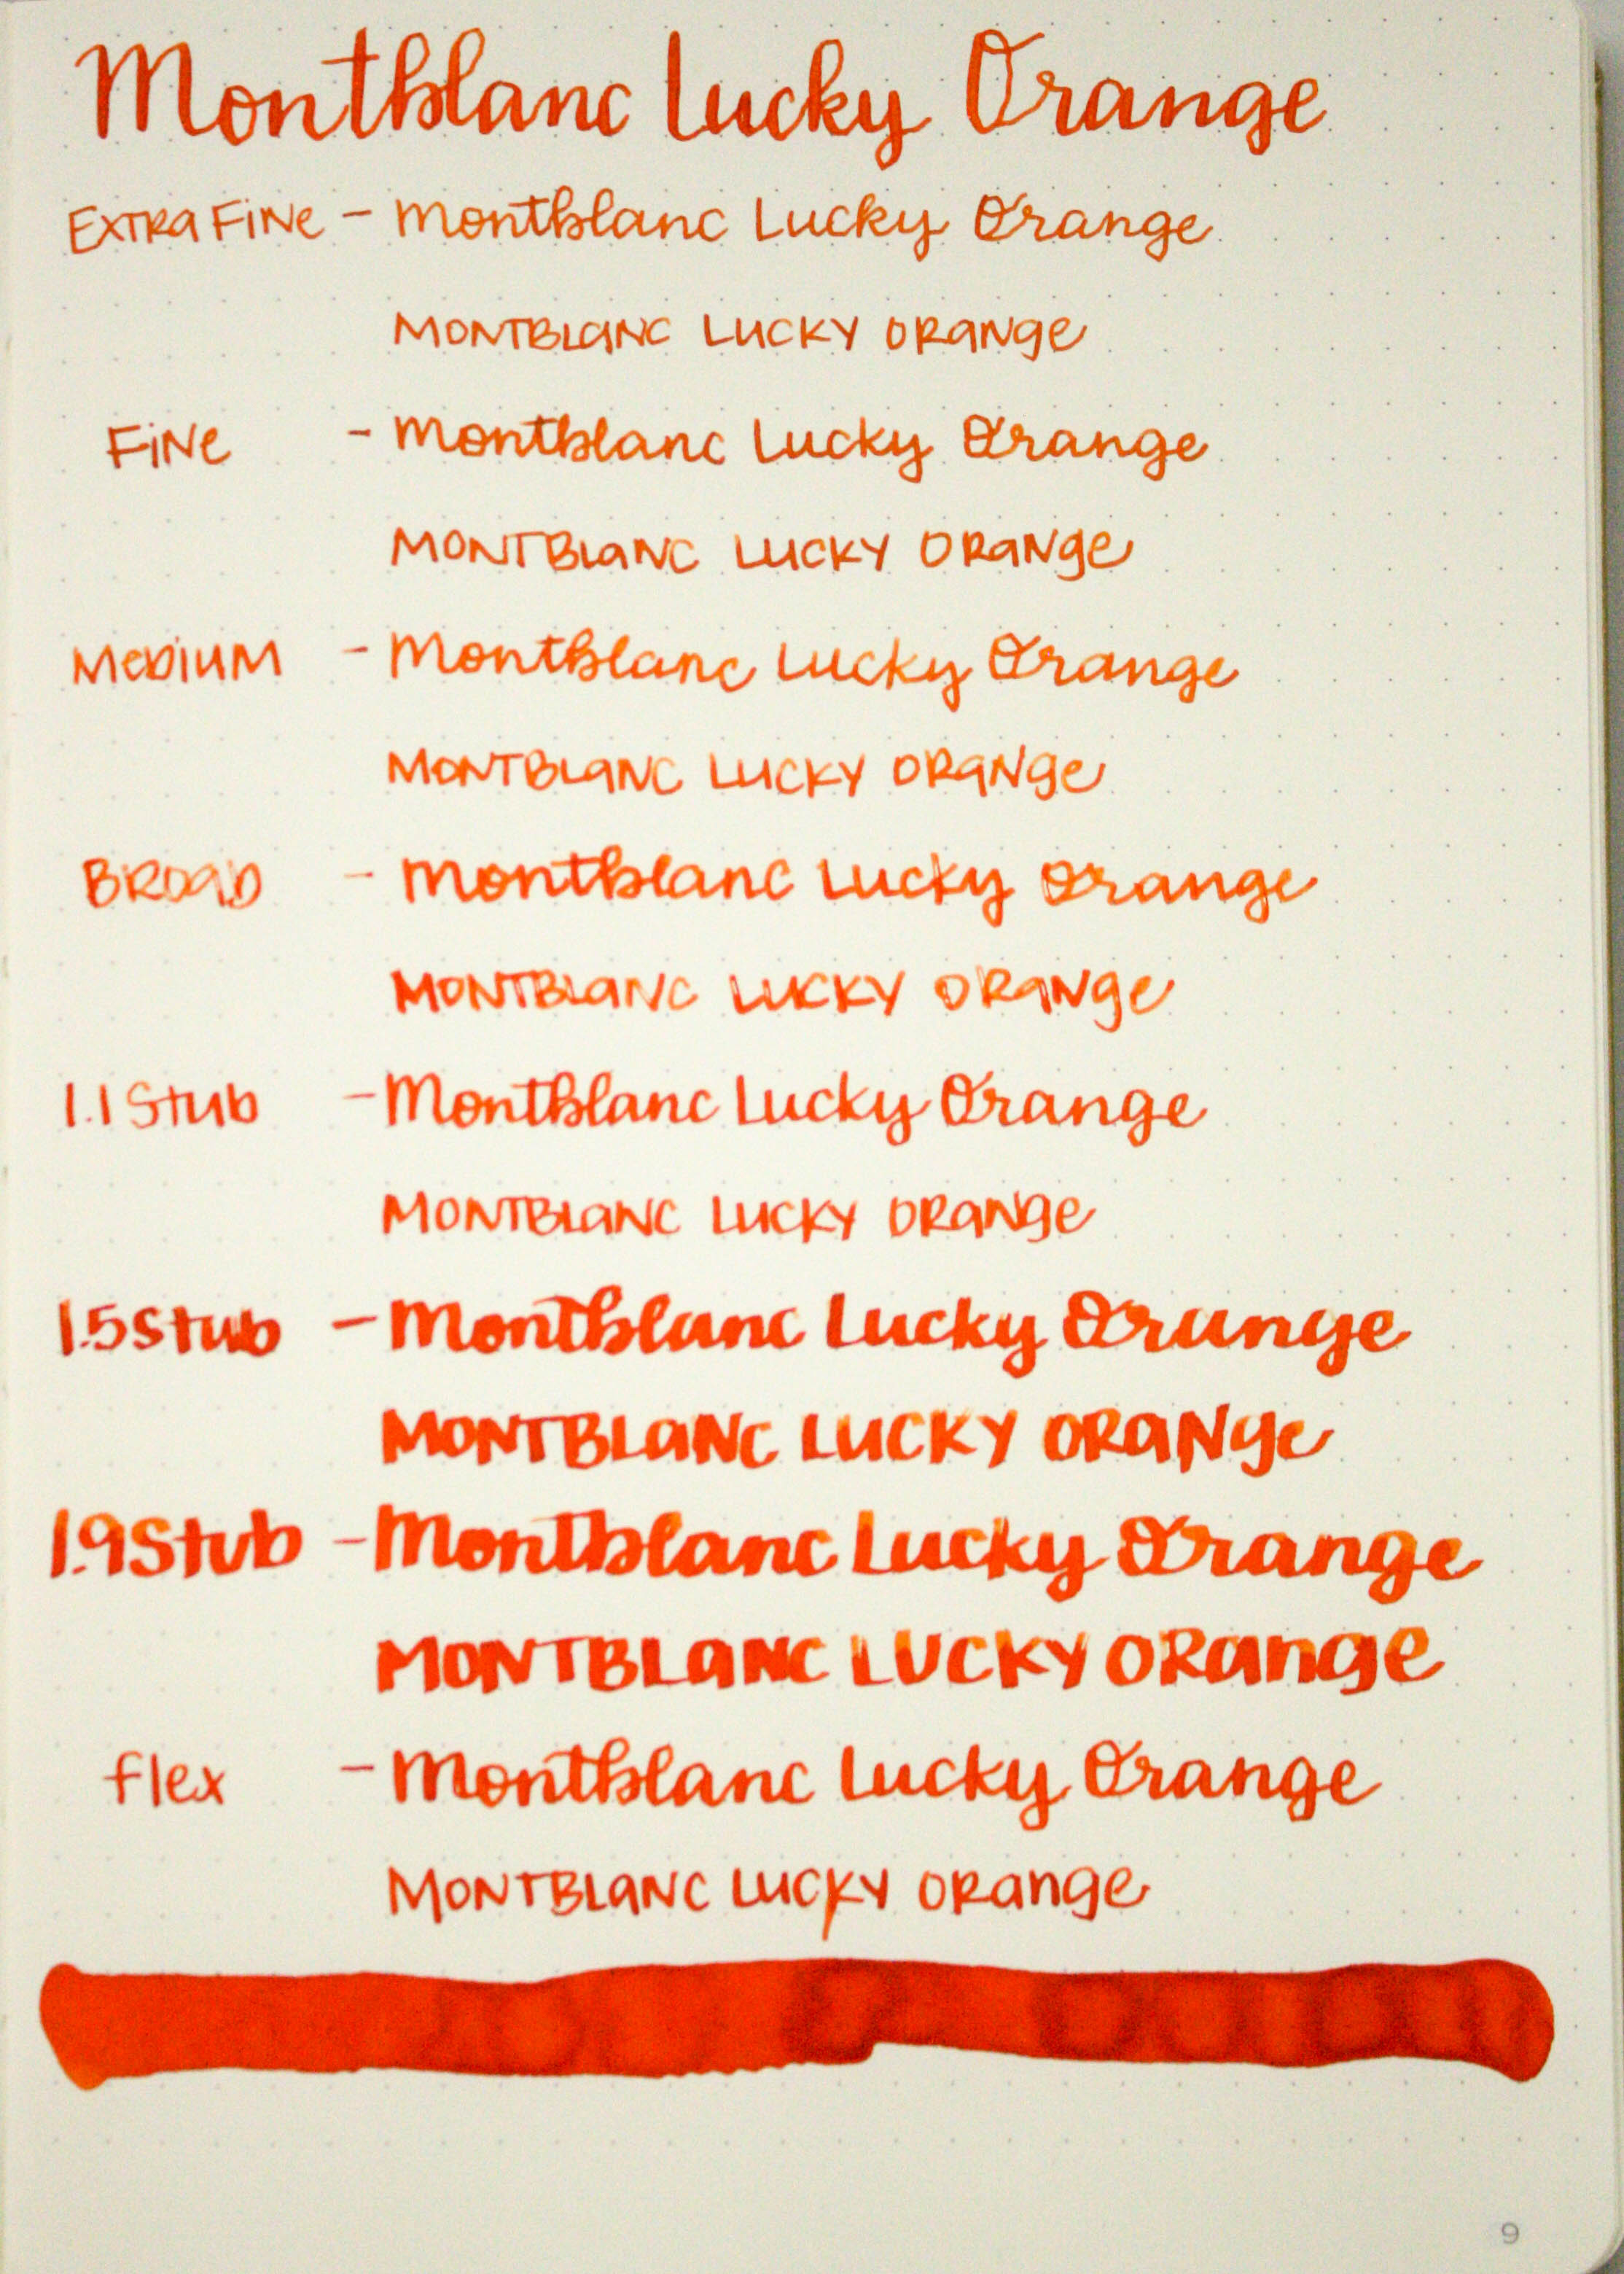 Montblanc Lucky Orange
Extra Fine - Montblanc Lucky Orange
MONTBLANC LUCKY ORANGE
Fine - Montblanc Lucky Orange
MONTBLANC LUCKY ORANGE
Medium - Montblanc Lucky Orange
MONTBLANC LUCKY ORANGE
Broad - Montblanc Lucky Orange
MONTBLANC LUCKY ORANGE
1.1 Stub - Montblanc Lucky Orange
MONTBLANC LUCKY ORANGE
1.5 Stub - Montblanc Lucky Orange
MONTBLANC LUCKY ORANGE
1.9 Stub - Montblanc Lucky Orange
MONTBLANC LUCKY ORANGE
flex - Montblanc Lucky Orange
MONTBLANC LUCKY ORANGE
9